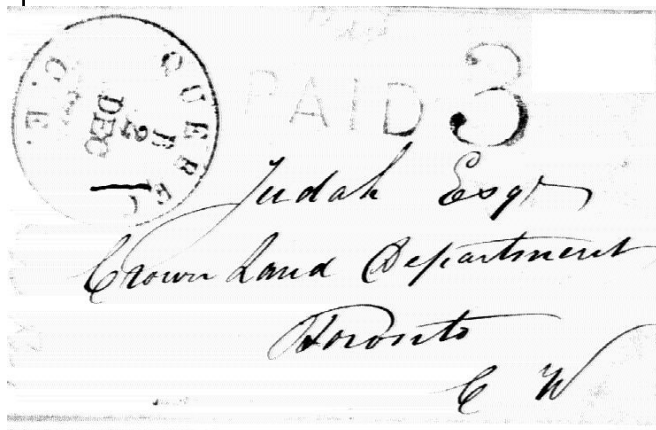 QUEBEC
C.E.
DEC
PAID 3
Judah Esqr
Crown Land Department
Toronto
C W